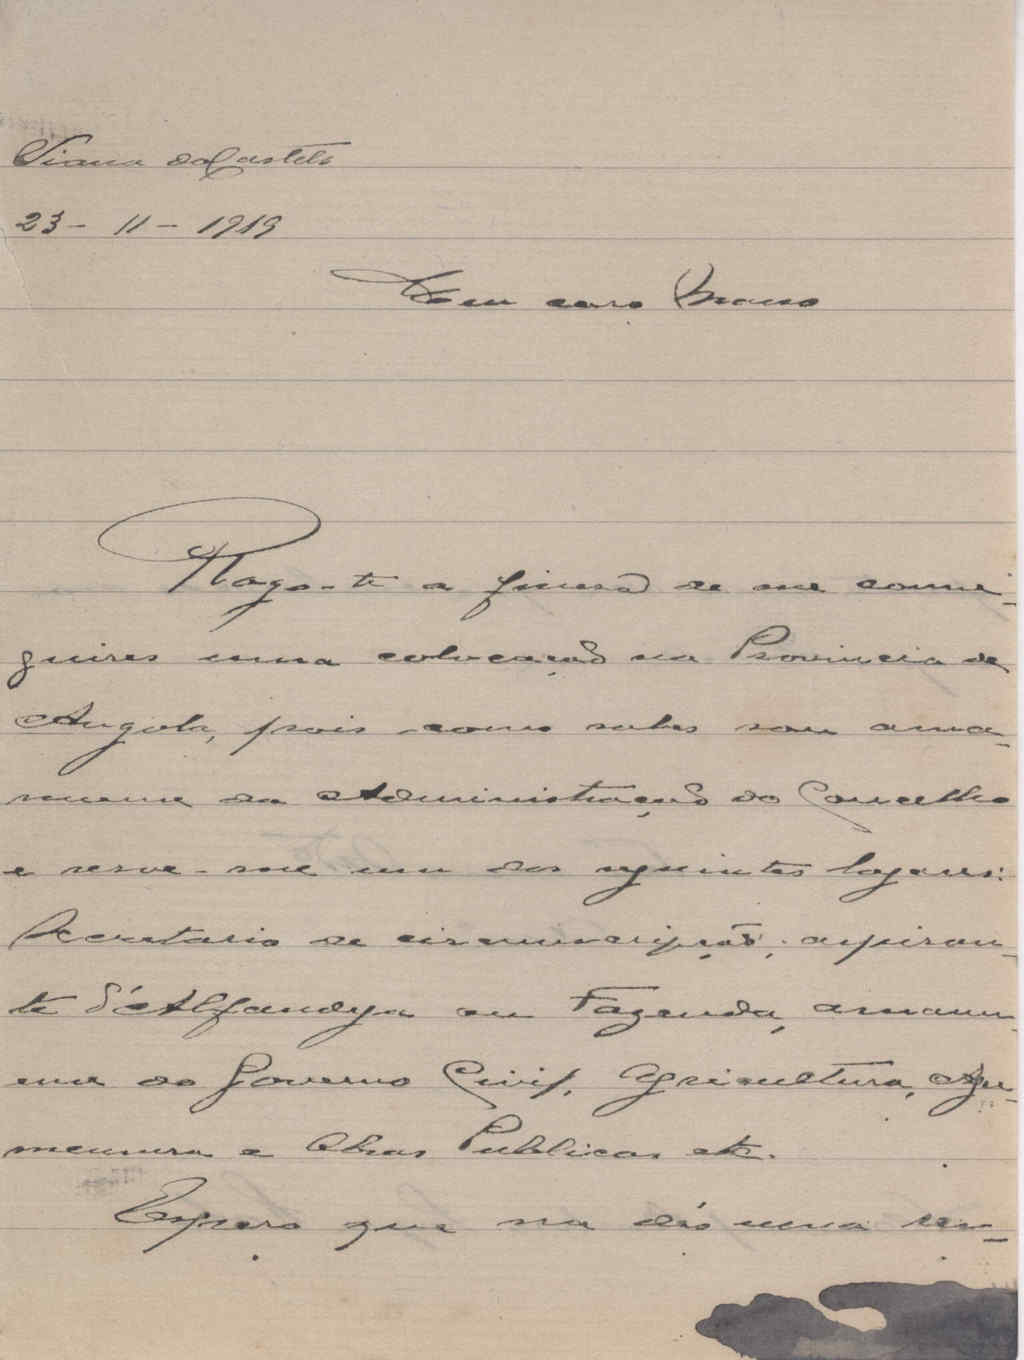 Viana do Castelo
23 - 11 - 1919
Meu caro Mano
Rogo-te a fineza de me conse-
guires uma colocação na Provincia de
Angola, pois como sabes sou ama-
nuense da Administração do Concelho
e serve-me um dos seguintes logares:
Secretario de circumscripção, aspiran-
te d'Alfandega ou Fazenda, amanu-
ense do Governo Civil, Agricultura, Agri-
mensura e Obras Publicas etc.
Espero que me dês uma